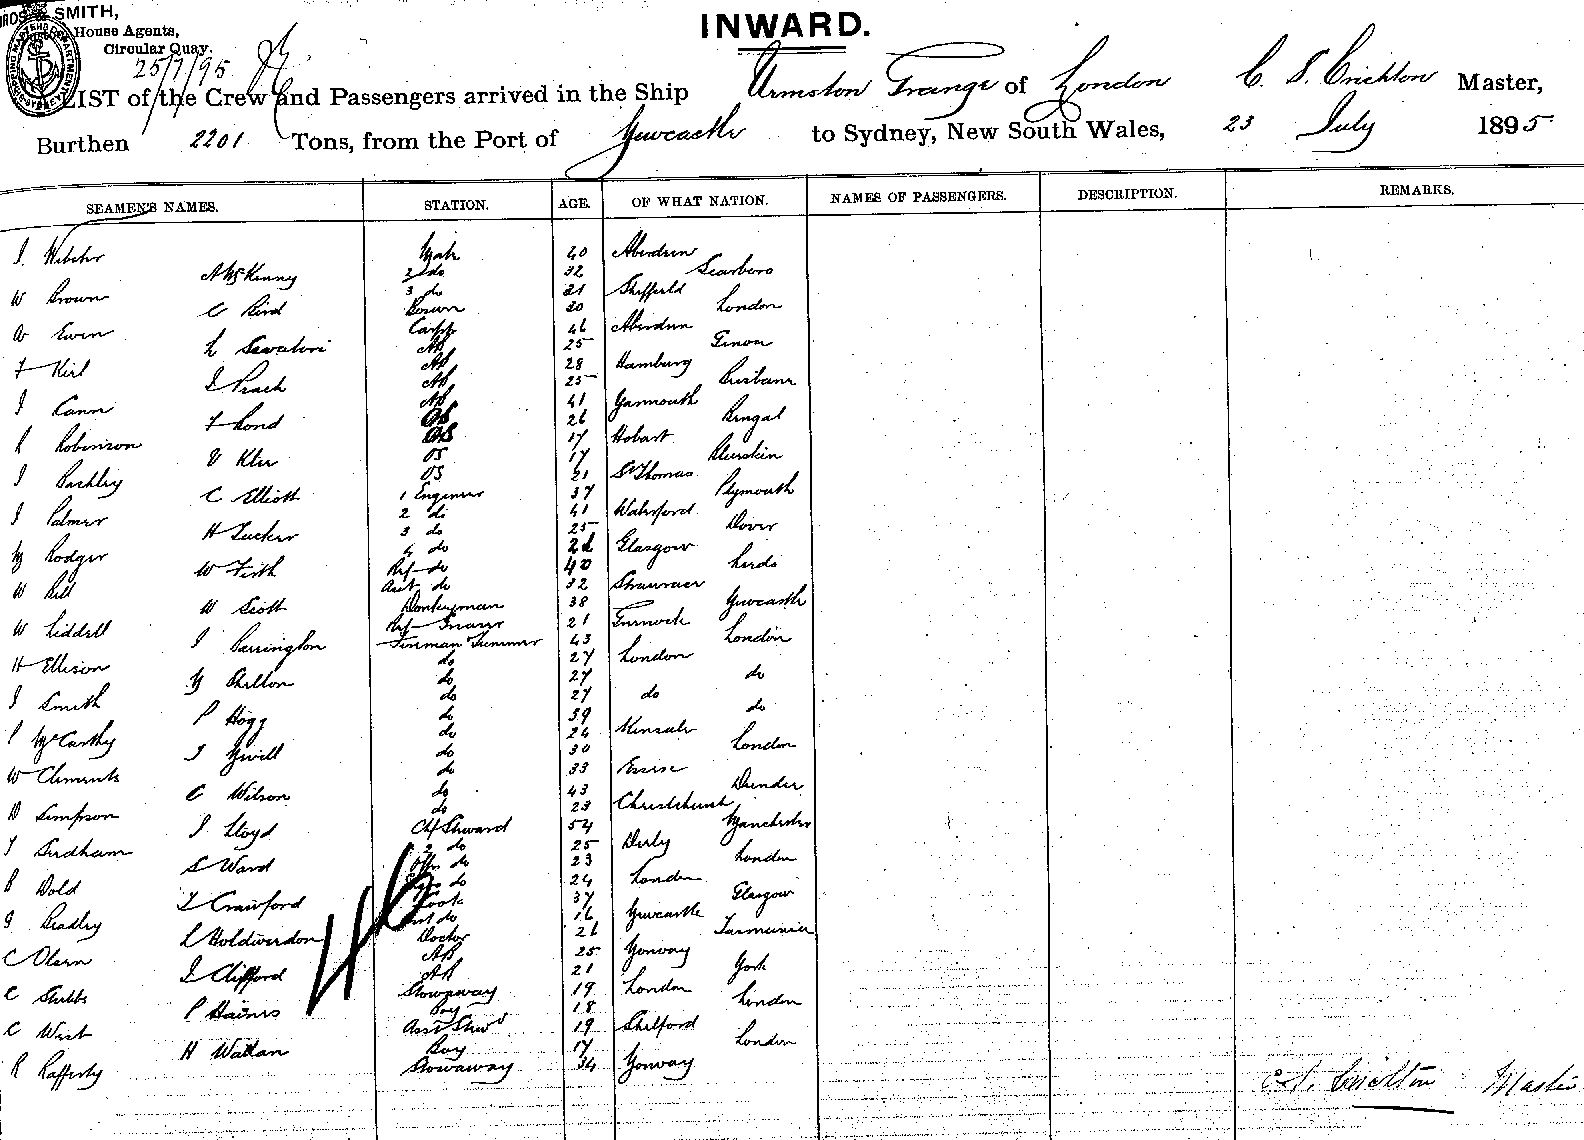 SMITH,
House Agents,
Circular Quay.
25/7/95
INWARD.
LIST of the Crew and Passengers arrived in the Ship Urmston Grange of London C. S. Crichton Master,
Burthen 2201 Tons, from the Port of Newcastle to Sydney, New South Wales, 23 July 1895
SEAMEN'S NAMES. STATION. AGE. OF WHAT NATION. NAMES OF PASSENGERS. DESCRIPTION. REMARKS.
J. Webster Mate 40 Aberdeen
A McKinny 2 do 32 Scarboro
W Brown 3 do 21 Sheffield
C Bird Bosun 30 London
W Ewen Carpr 46 Aberdeen
L Sevatori AB 25 Genoa
F Kirl AB 28 Hamburg
J Peach AB 25 Brisbane
J Cann AB 41 Yarmouth
F Lond 26 Bengal
R Robinson 17 Hobart
V OS 17
J Bachley OS 21 St Thomas
C Elliott 1 Engineer 37 Plymouth
J Palmer 2 do 41 Waterford
H Tucker 3 do 25 Dover
M Rodger 4 do Glasgow
W Firth Ref do 40 Leeds
W Bell Asst do 32 Stranraer
W Scott Donkeyman 38 Newcastle
W Liddell Ref Greaser 21 Greenock
J Barrington Fireman Trimmer 43 London
H Ellison do 27 London
M Skelton do 27 do
J Smith do 27 do
P Hogg do 39 do
P McCarthy do 24 Kinsale
J Nevill do 30 London
W Clements do 33 Essex
C Wilson do 43 Dundee
D Simpson do 23 Christchurch
J Lloyd Chf Steward 54 Manchester
T Sirdham 2 do 25 Derby
S Ward do 23 London
B Dold do 24 London
T Crawford Cook 37 Glasgow
G Bradley do 16 Newcastle
L Holdwerdon Doctor 26 Tasmania
C Olsen AB 25 Norway
J Clifford AB 21 York
E Stubbs Stowaway 19 London
P Haines Boy 18 London
C West Asst Stewd 19 Shelford
H Wattan Boy 17 London
R Rafferty Stowaway 34 Norway
C. S. Crichton Master